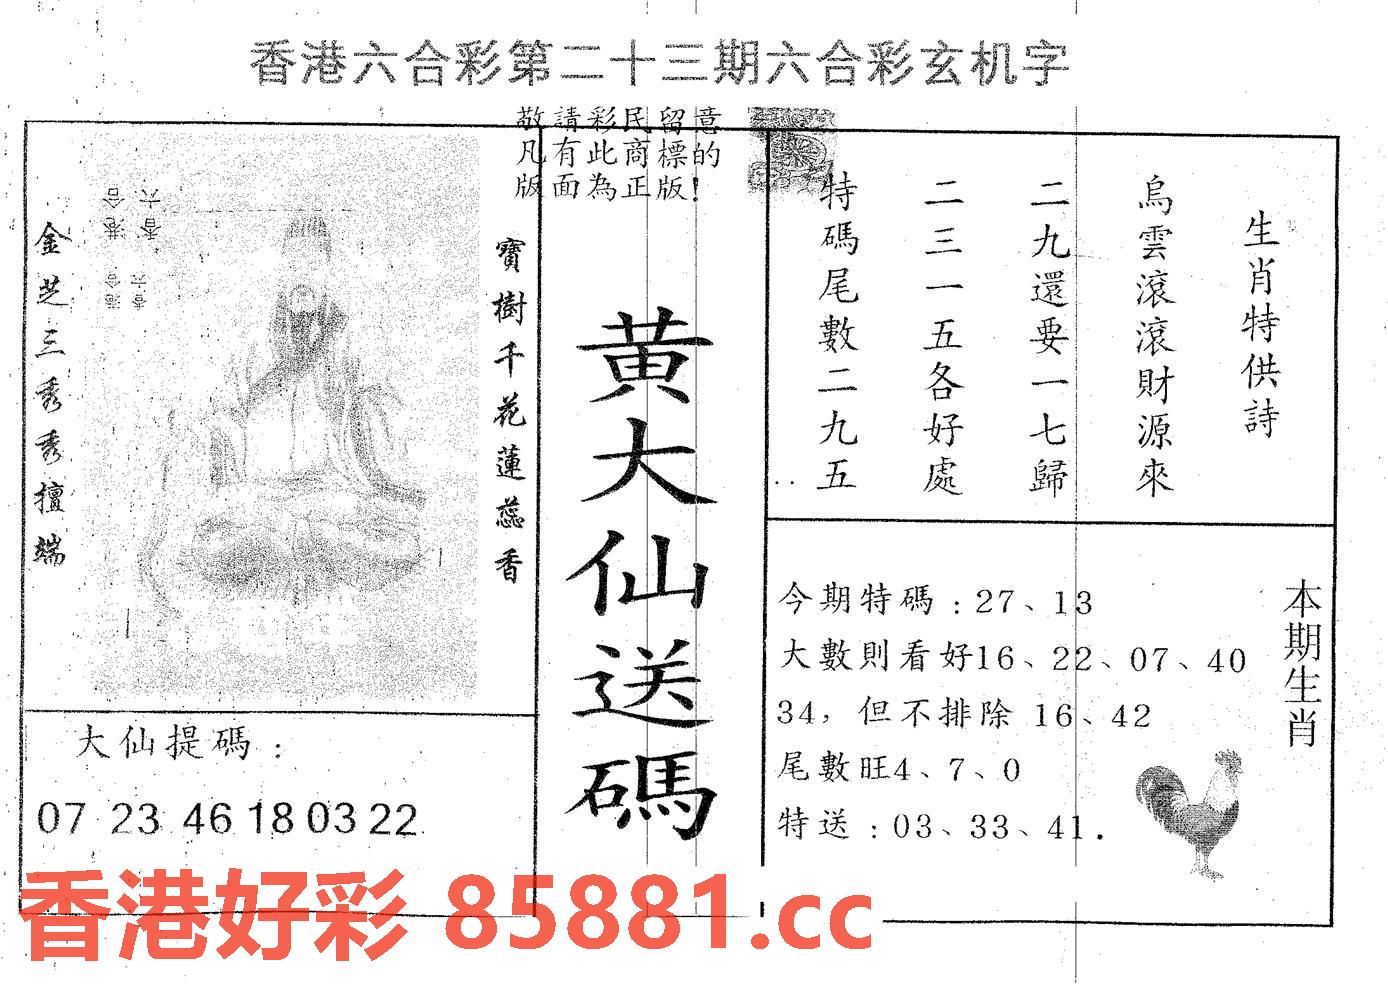 香港六合彩第二十三期六合彩玄机字
敬請彩民留意
凡有此商標的
版面為正版!
金芝三秀秀擅端
寶樹千花蓮蕊香
黃大仙送碼
生肖特供詩
烏雲滾滾財源來
二九還要一七歸
二三一五各好處
特碼尾數二九五
本期生肖
今期特碼:27、13
大數則看好16、22、07、40
34，但不排除 16、42
尾數旺4、7、0
特送:03、33、41.
大仙提碼:
07 23 46 18 03 22
香港好彩 85881.cc